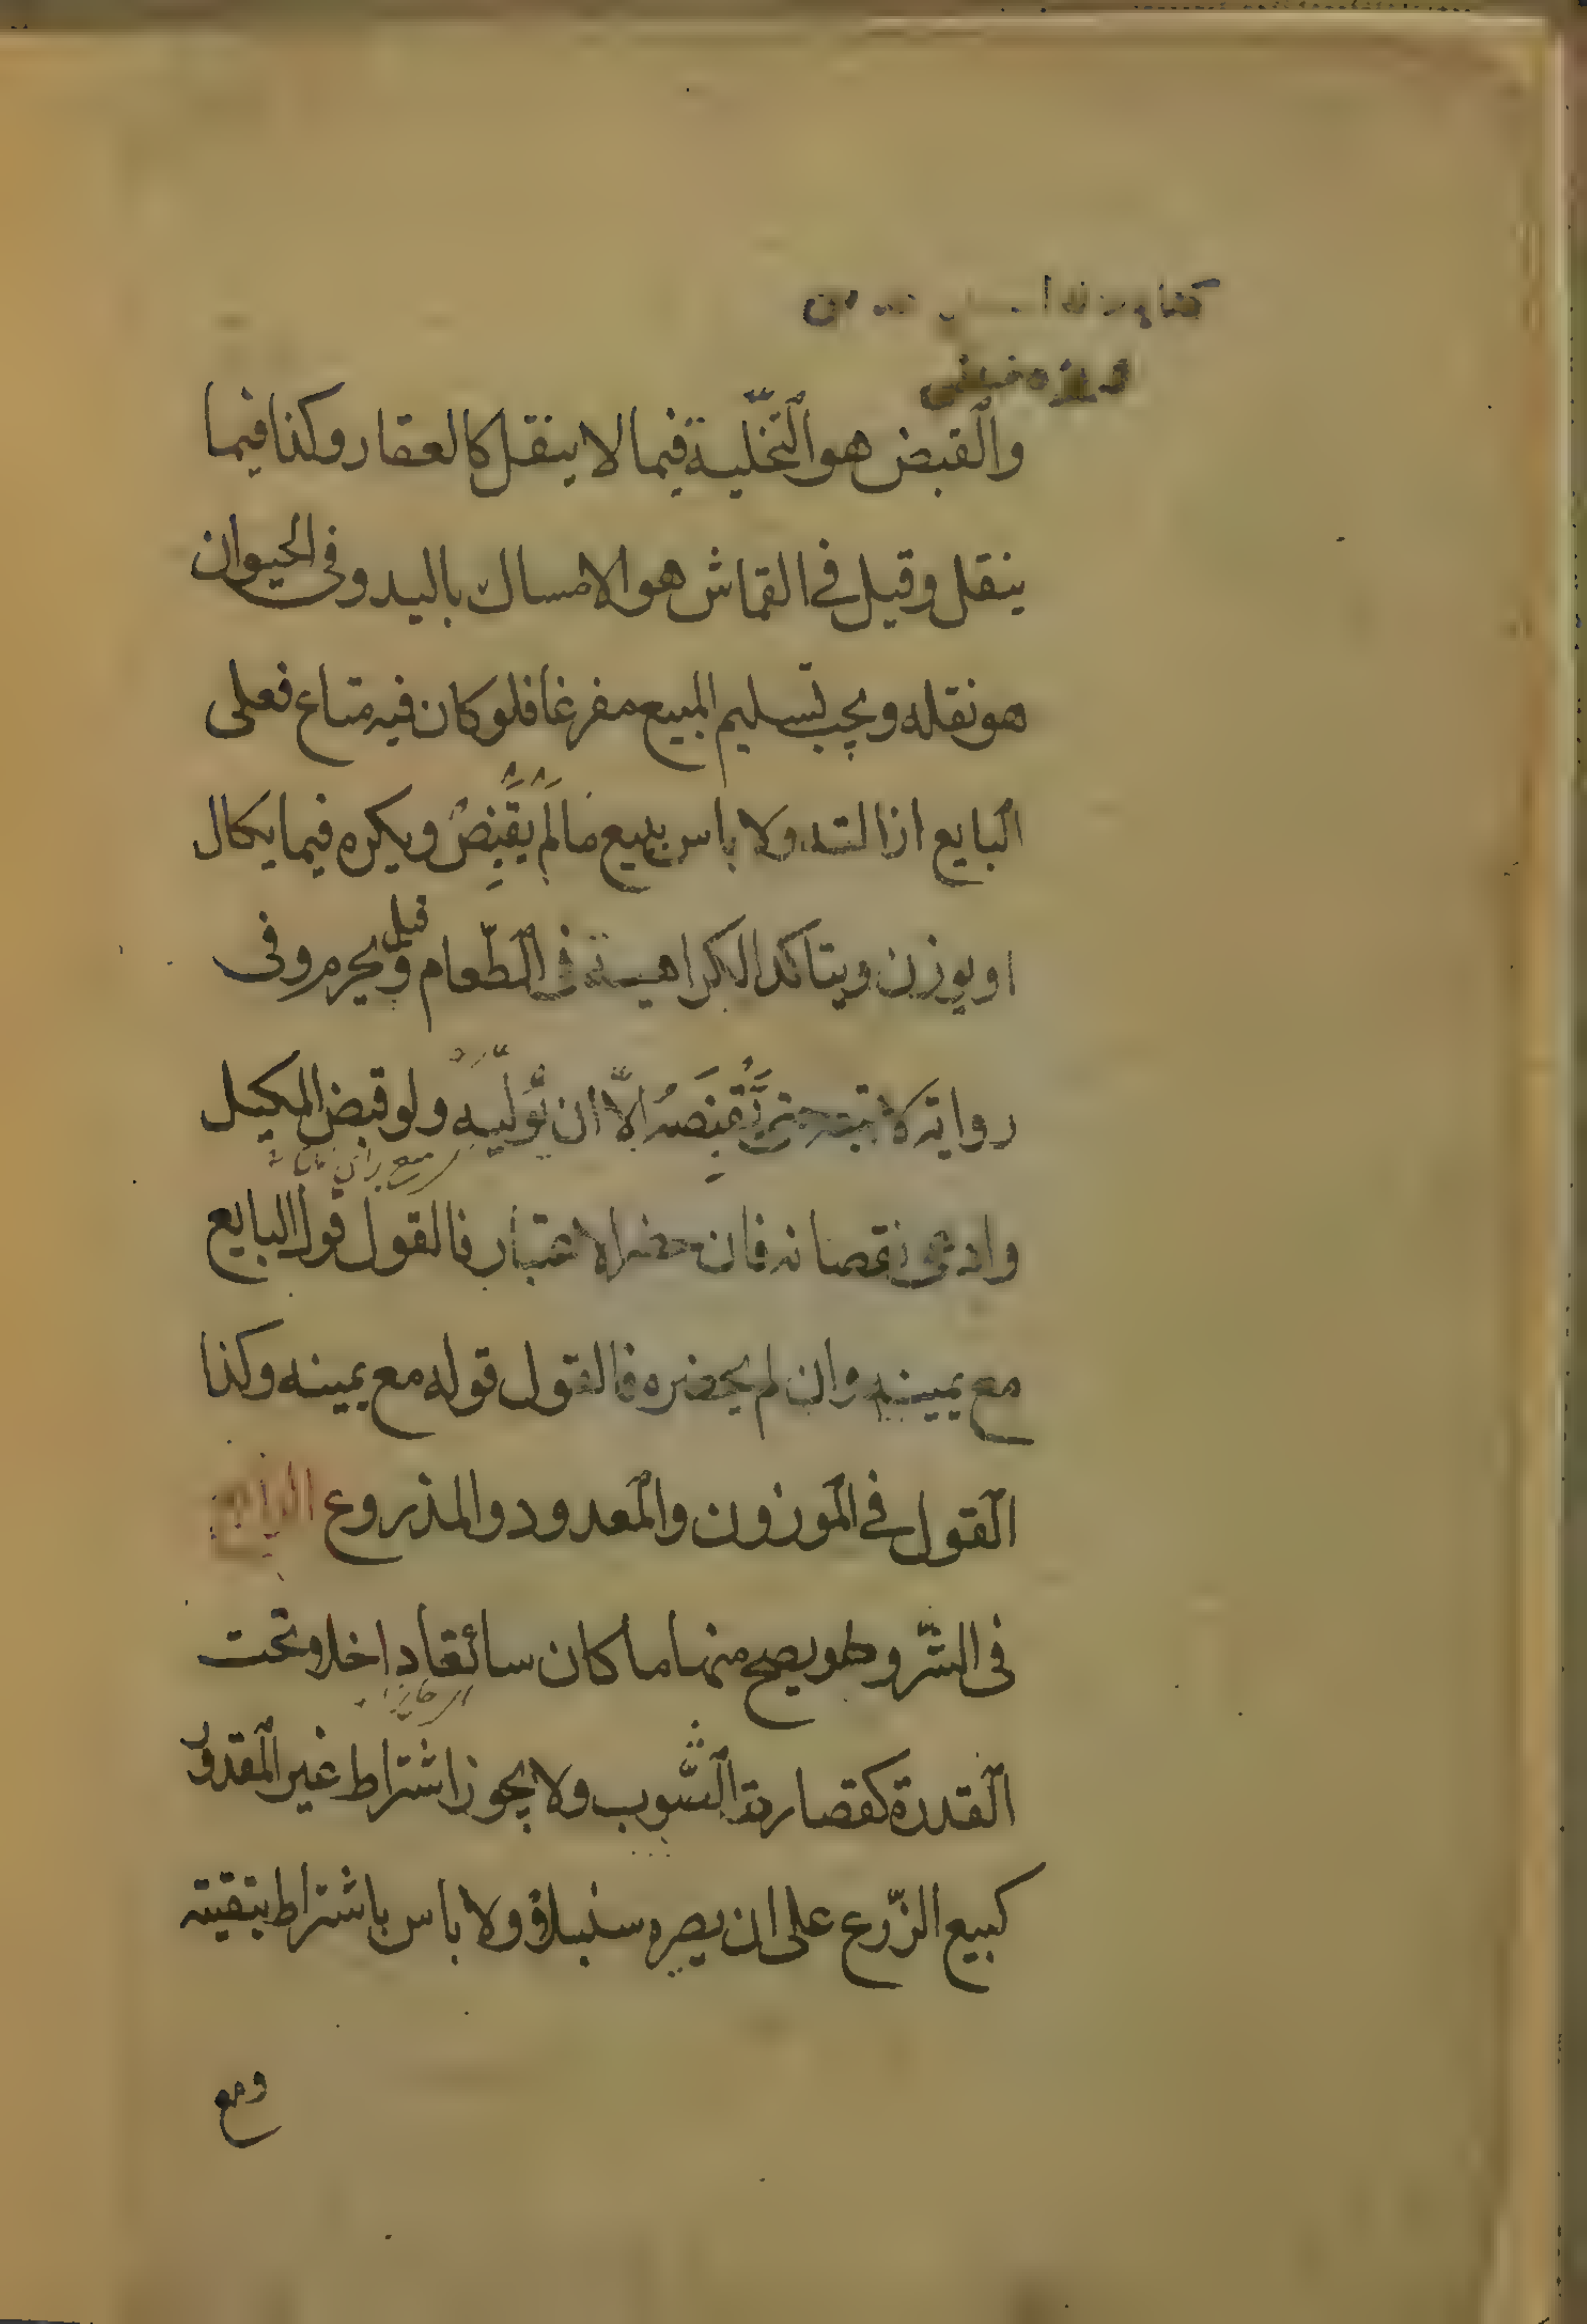 والقبض هو التّخلّية فيما لا ينقل كالعقار وكذا فيما
ينقل وقيل في القماش هو الامساك باليد وفى الحيوان
هو نقله ويجب تسليم المبيع مفرغا فلو كان فيه متاع فعلى
البايع ازالته ولا باس ببيع ما لم يقبض ويكره فيما يكال
او يوزن ويتاكد الكراهية فى الطّعام وقيل يحرم وفى
رواية لا تبعه حتى تقبضه الّا ان تولّيه ولو قبض المكيل
وادعى نقصانه فان حضر الاعتبار فالقول قول البايع
مع يمينه وان لم يحضره فالقول قوله مع يمينه وكذا
القول في الموزون والمعدود والمذروع الرابع
فى الشّروط ويصح منها ما كان سائغا داخلا تحت
القدرة كقصارة الثّوب ولا يجوز اشتراط غير المقدور
كبيع الزّرع على ان يصيره سنبلا ولا باس باشتراط تبقيته
ومع